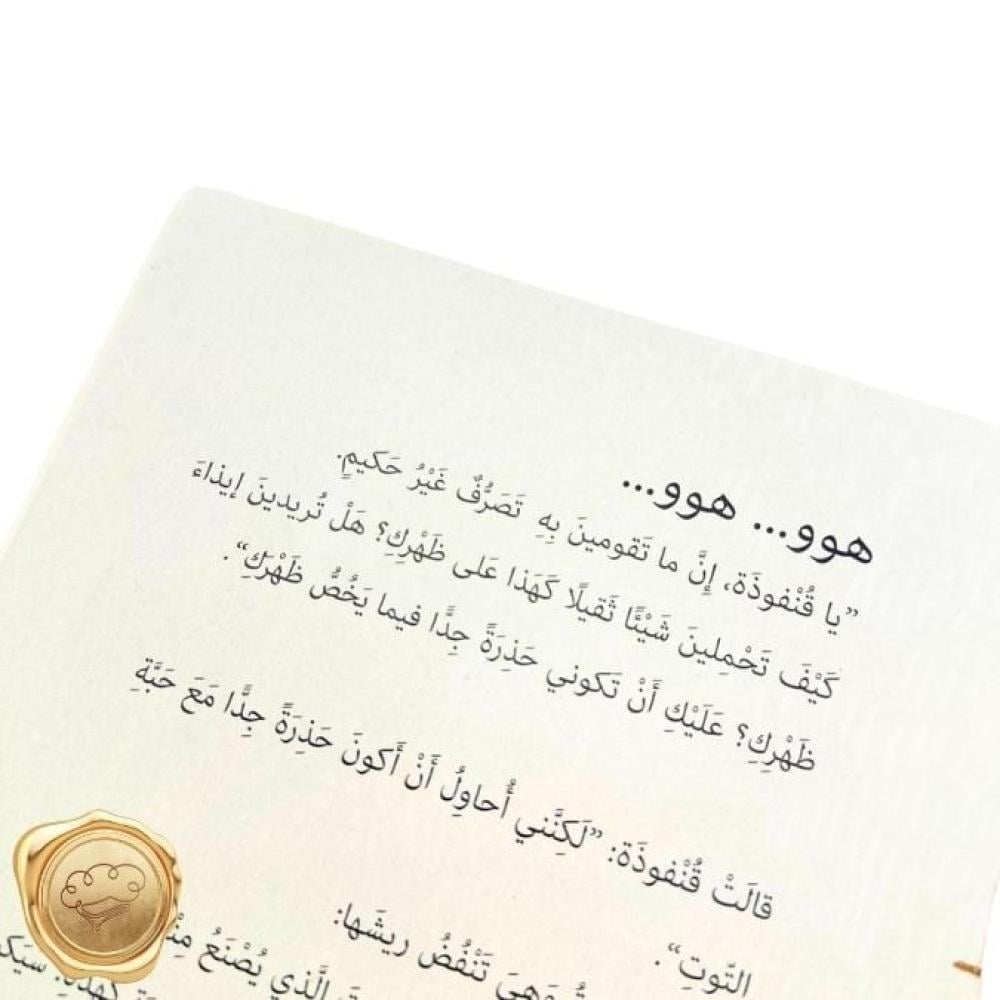 هوو... هوو...
”يا قُنْفوذَة، إِنَّ ما تَقومينَ بِهِ تَصَرُّفٌ غَيْرُ حَكيمٍ.
كَيْفَ تَحْمِلينَ شَيْئًا ثَقيلًا كَهَذا عَلى ظَهْرِكِ؟ هَلْ تُريدينَ إيذاءَ
ظَهْرِكِ؟ عَلَيْكِ أَنْ تَكوني حَذِرَةً جِدًّا فيما يَخُصُّ ظَهْرَكِ“.
قالَتْ قُنْفوذَة: ”لَكِنَّني أُحاوِلُ أَنْ أَكونَ حَذِرَةً جِدًّا مَعَ حَبَّةِ
التّوتِ“.
وَهِيَ تَنْفُضُ ريشَها:
الَّذي يُصْنَعُ